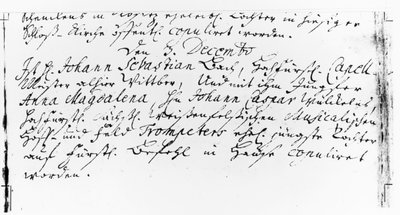 Tochter in hiesiger
Schloß-Kirche öffentl. copuliret worden.
Den 3. Decembr
H. Johann Sebastian Bach, HochFürstl. Capell
Meister alhier Wittber, Und mit ihm Jungfer
Anna Magdalena, H. Johann Caspar Wülckens,
HochFürstl. Sächß. Weißenfelsischen Musicalischen
Hoff- und Feld Trompeters ehel. jüngste Tochter
auf Fürstl. Befehl in Hause copuliret
worden.